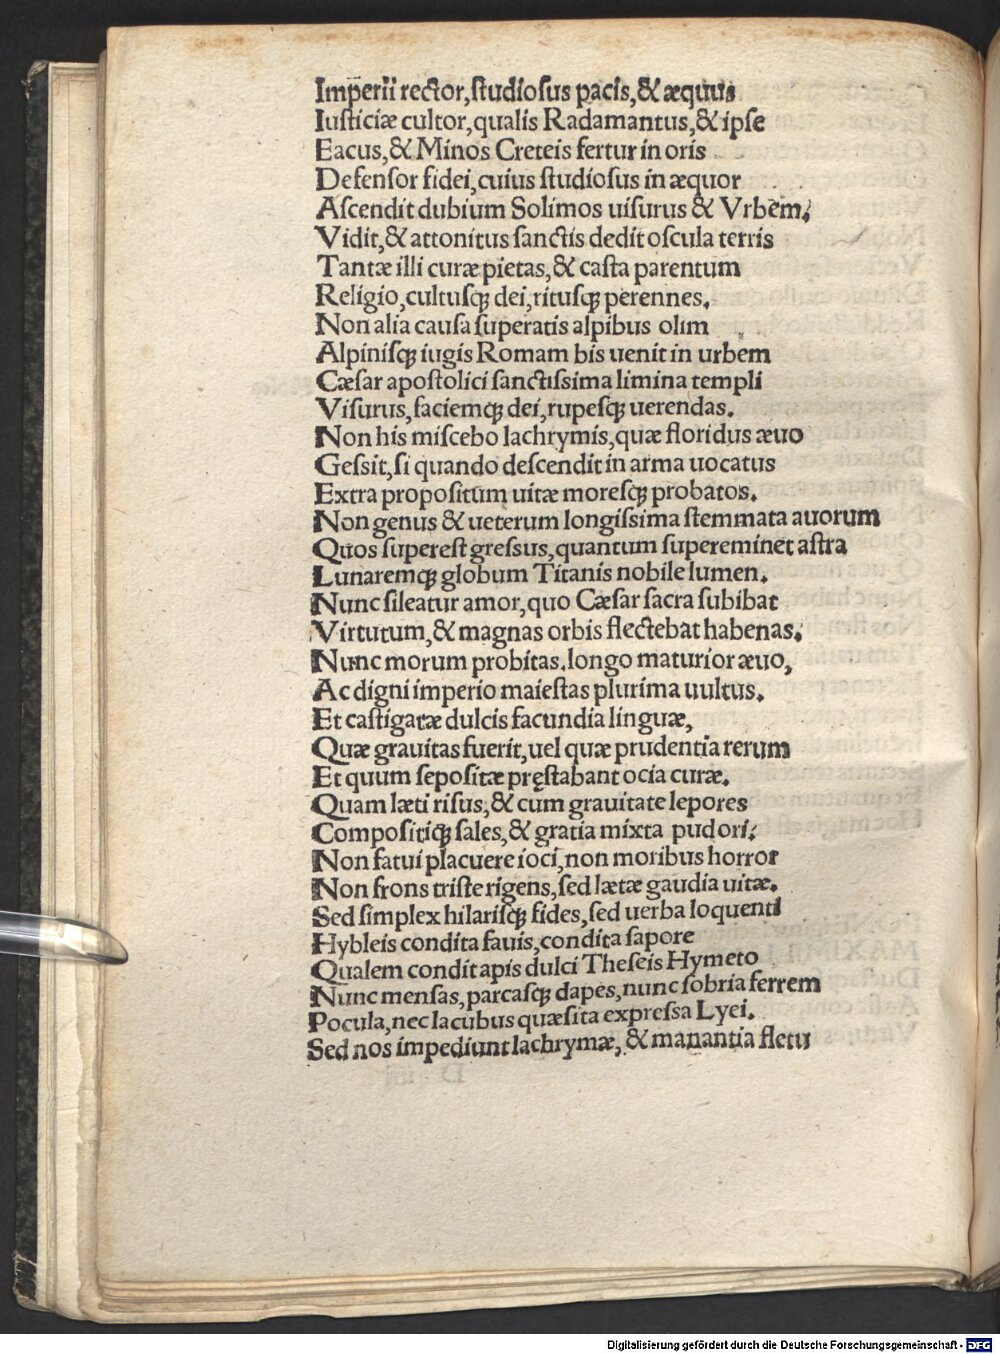 Imperii rector,ſtudioſus pacis,& æquus
Iuſticiæ cultor,qualis Radamantus,& ipſe
Eacus,& Minos Creteis fertur in oris
Defenſor fidei,cuius ſtudioſus in æquor
Aſcendit dubium Solimos uiſurus & Vrbem;
Vidit,& attonitus ſanctis dedit oſcula terris
Tantæ illi curæ pietas,& caſta parentum
Religio,cultuſqꝫ dei,rituſqꝫ perennes.
Non alia cauſa ſuperatis alpibus olim
Alpiniſqꝫ iugis Romam bis uenit in urbem
Cæſar apoſtolici ſanctiſſima limina templi
Viſurus,faciemqꝫ dei,rupeſqꝫ uerendas.
Non his miſcebo lachrymis,quæ floridus æuo
Geſſit,ſi quando deſcendit in arma uocatus
Extra propoſitum uitæ moreſqꝫ probatos.
Non genus & ueterum longiſſima ſtemmata auorum
Quos ſupereſt greſſus,quantum ſupereminet aſtra
Lunaremqꝫ globum Titanis nobile lumen.
Nunc ſileatur amor,quo Cæſar ſacra ſubibat
Virtutum,& magnas orbis flectebat habenas.
Nunc morum probitas.longo maturior æuo,
Ac digni imperio maieſtas plurima uultus.
Et caſtigatæ dulcis facundia linguæ,
Quæ grauitas fuerit,uel quæ prudentia rerum
Et quum ſepoſitæ pręſtabant ocia curæ.
Quam læti riſus,& cum grauitate lepores
Compoſitiqꝫ ſales,& gratia mixta pudori;
Non fatui placuere ioci,non moribus horror
Non frons triſte rigens,ſed lætæ gaudia uitæ.
Sed ſimplex hilariſqꝫ fides,ſed uerba loquenti
Hybleis condita fauis,condita ſapore
Qualem condit apis dulci Theſeis Hymeto
Nunc menſas,parcaſqꝫ dapes,nunc ſobria ferrem
Pocula,nec lacubus quæſita expreſſa Lyei.
Sed nos impediunt lachrymæ,& manantia fletu
Digitalisierung gefördert durch die Deutsche Forschungsgemeinschaft - DFG